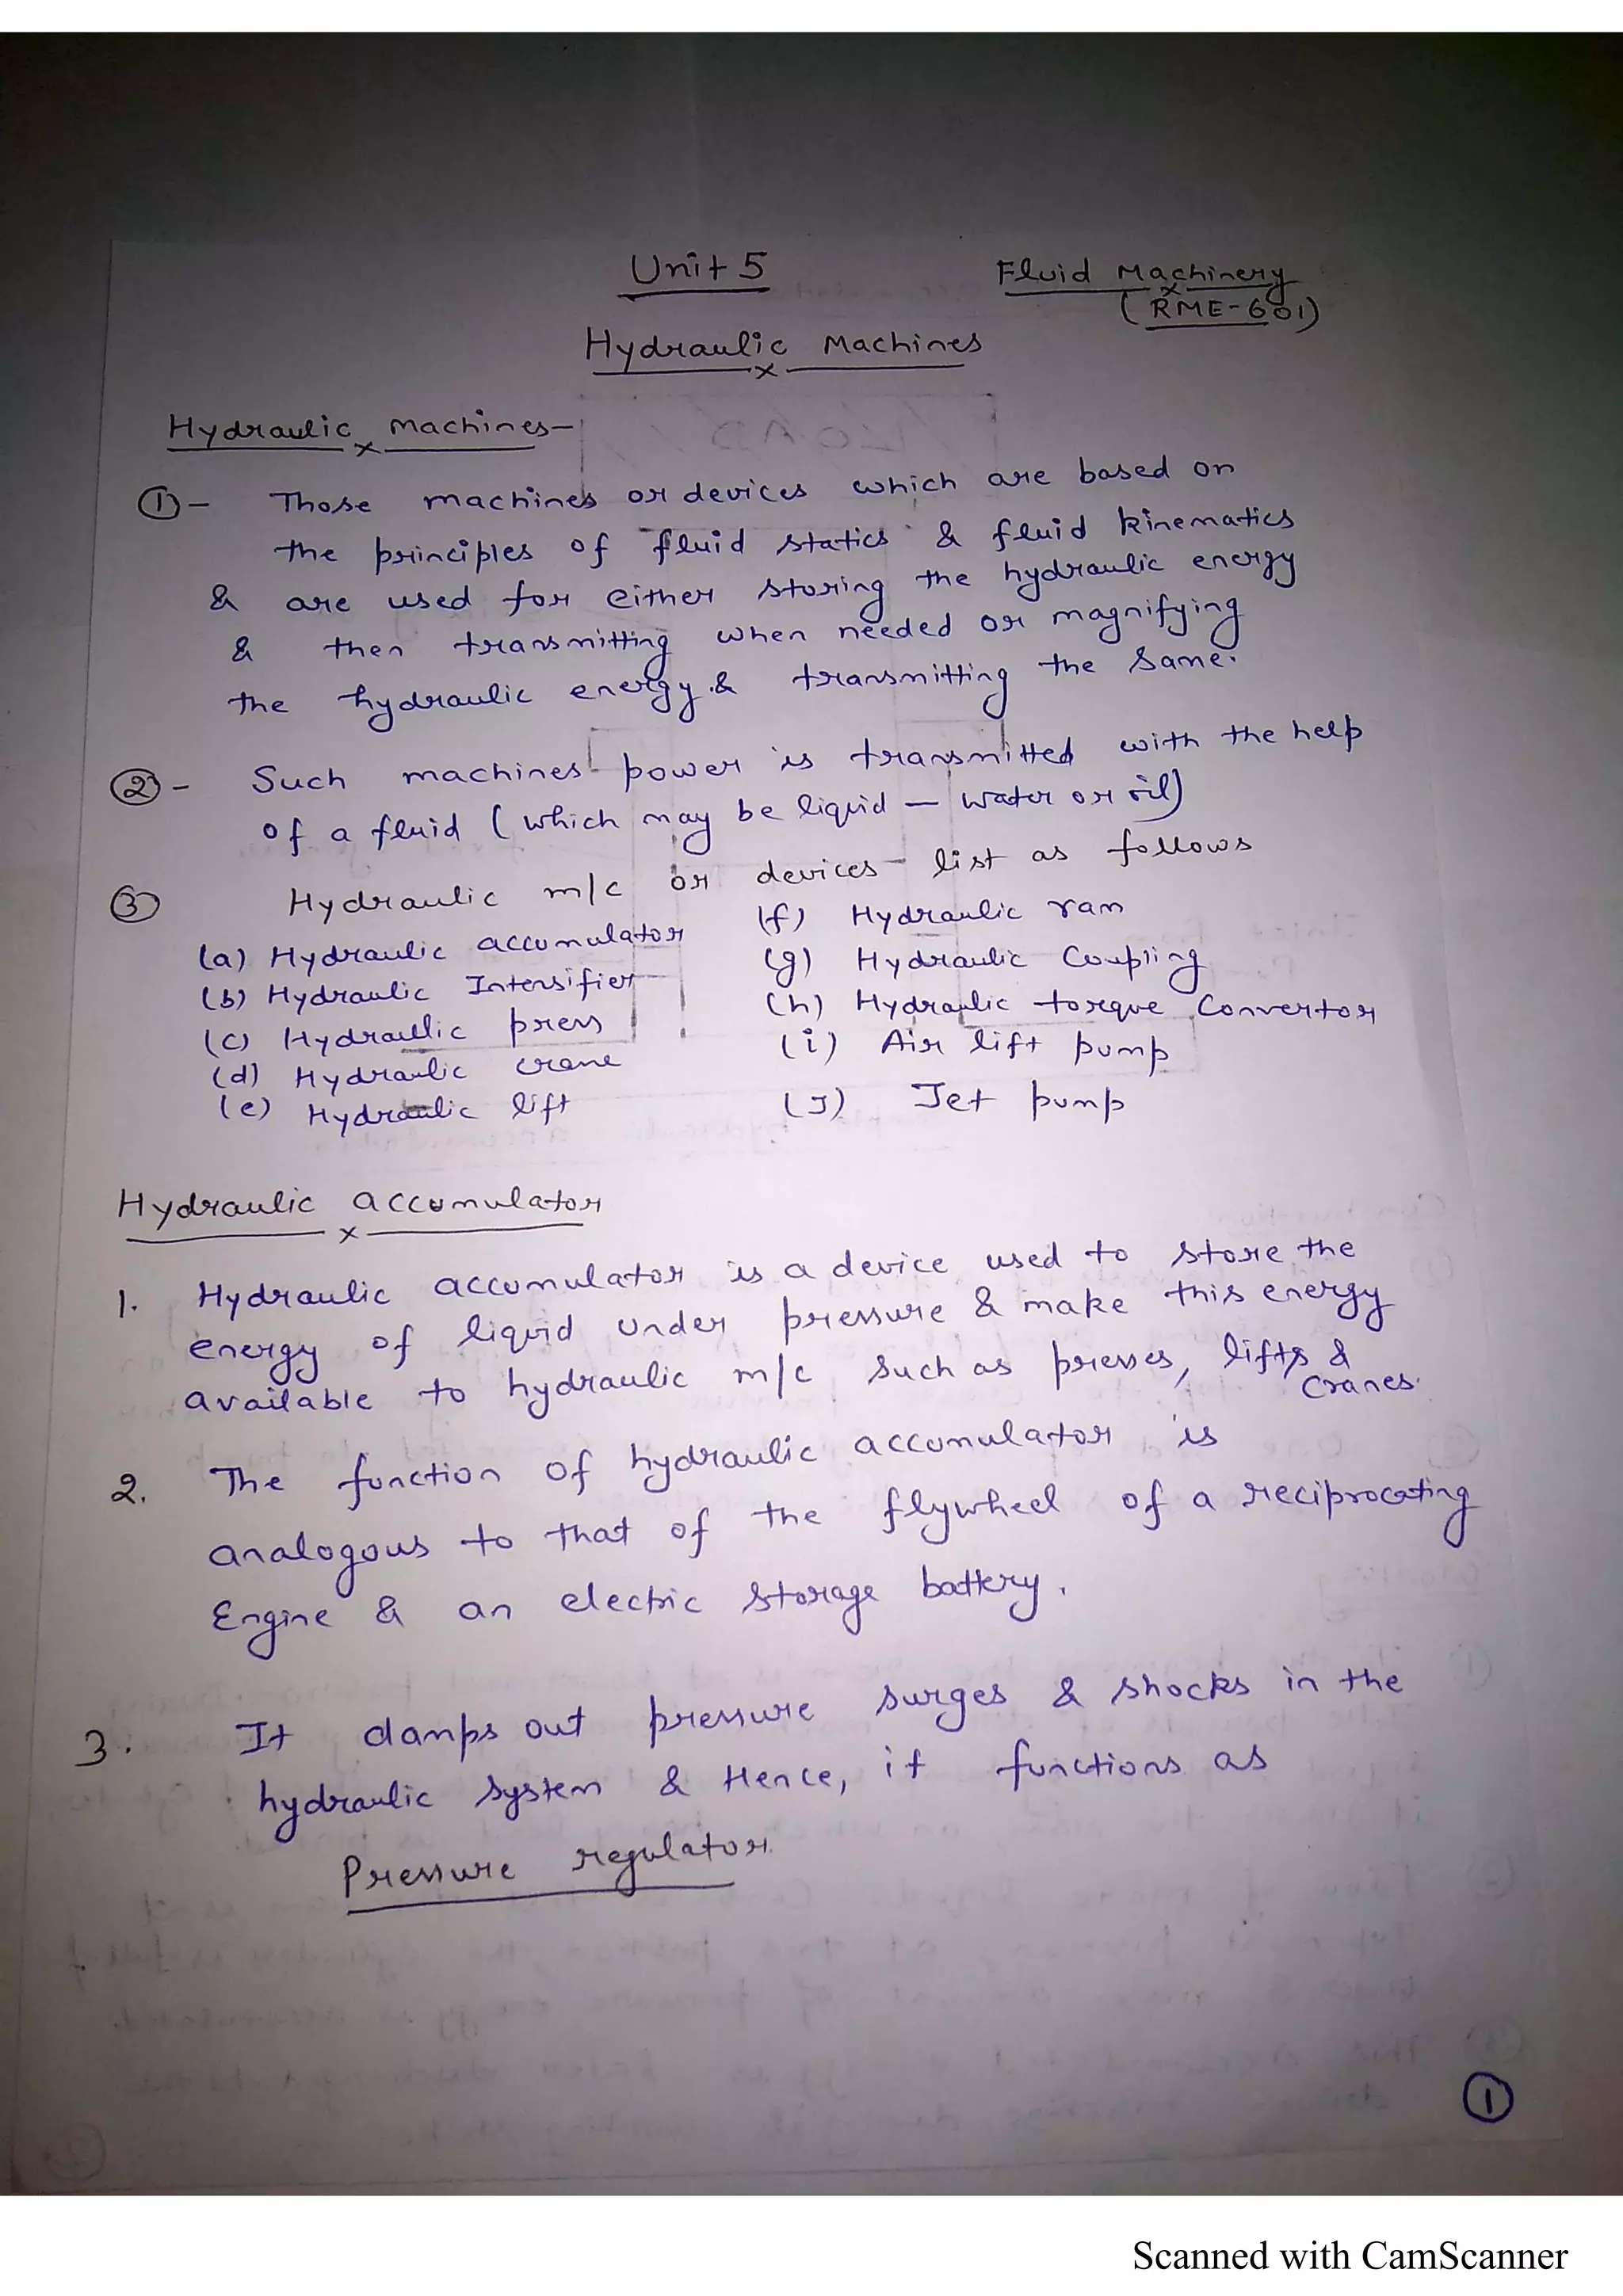 Unit 5
Fluid Machinery
(RME-601)
Hydraulic Machines
Hydraulic Machines-
① - Those machines or devices which are based on
the principles of fluid statics & fluid kinematics
& are used for either storing the hydraulic energy
& then transmitting when needed or magnifying
the hydraulic energy & transmitting the same.
② - Such machines power is transmitted with the help
of a fluid (which may be liquid - water or oil)
③ Hydraulic m/c or devices - list as follows
(a) Hydraulic accumulator
(b) Hydraulic Intensifier
(c) Hydraulic press
(d) Hydraulic crane
(e) Hydraulic lift
(f) Hydraulic ram
(g) Hydraulic Coupling
(h) Hydraulic torque Convertor
(i) Air lift pump
(J) Jet pump
Hydraulic accumulator
1. Hydraulic accumulator is a device used to store the
energy of liquid under pressure & make this energy
available to hydraulic m/c such as presses, lifts &
cranes.
2. The function of hydraulic accumulator is
analogous to that of the flywheel of a reciprocating
Engine & an electric storage battery.
3. It damps out pressure surges & shocks in the
hydraulic system & Hence, it functions as
Pressure regulator.
①
Scanned with CamScanner